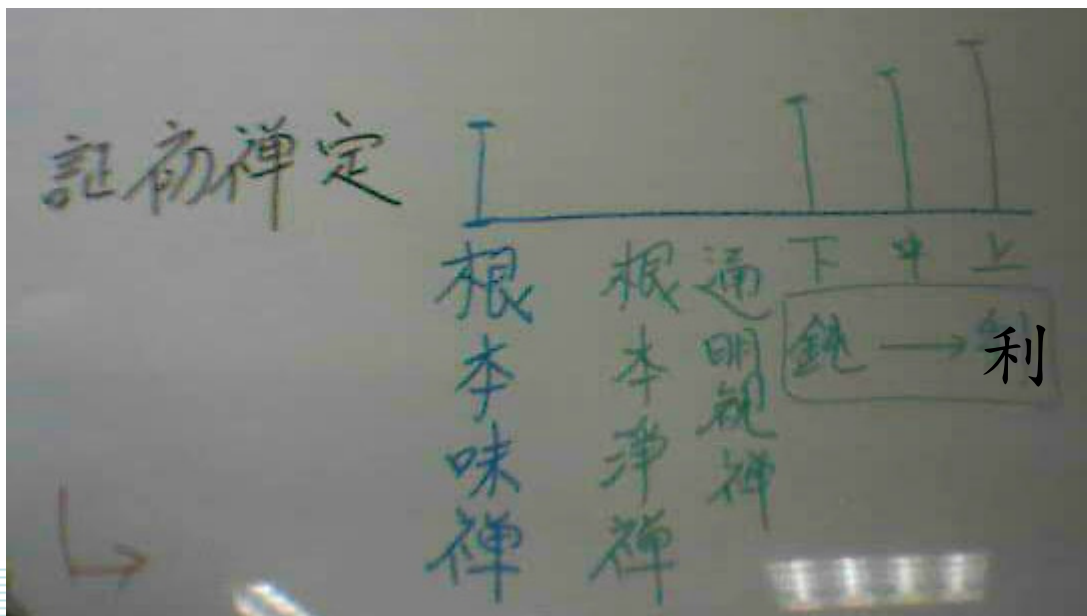 証初禅定
根本味禅
根本淨禅
通明観禅
下 中 上
鈍 → 利